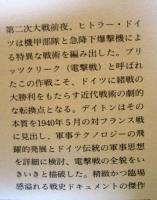 第二次大戦前夜、ヒトラー・ドイ
ツは機甲部隊と急降下爆撃機に
よる特異な戦術を編み出した。ブ
リッツクリーク（電撃戦）と呼ばれ
たこの作戦こそ、ドイツに緒戦の
大勝利をもたらす近代戦術の劇的
な転換点となる。デイトンはその
本質を1940年５月の対フランス戦
に見出し、軍事テクノロジーの飛
躍的発展とドイツ伝統の軍事思想
を詳細に検討、電撃戦の全貌をい
きいきと描破した。精緻かつ臨場
感溢れる戦史ドキュメントの傑作